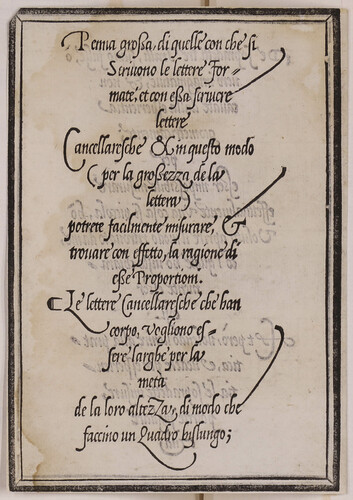 Penna großa, di quelle con che si
Scrivono le lettere For-
mate, et con eßa scrivere
lettere
Cancellaresche & in questo modo
( per la großezza de la
lettera )
potrete facilmente misurare, &
trovare con effetto, la ragione di
eße Proportioni.
Le lettere Cancellaresche che han
corpo, vogliono es-
sere larghe per la
metà
de la loro altezza, di modo che
faccino un Quadro bislungo;